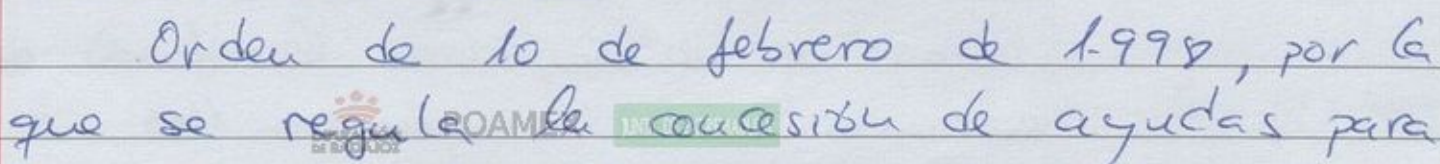 Orden de 10 de febrero de 1.998, por la
que se regula la concesión de ayudas para